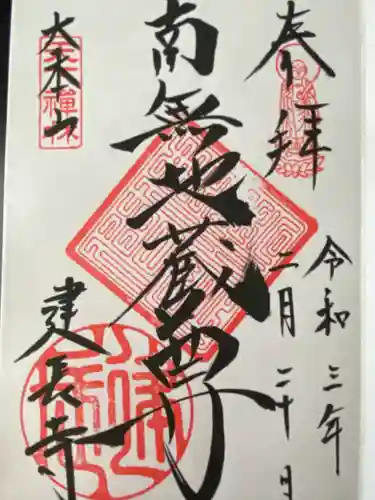 奉拝
令和三年
二月二十日
南無地蔵尊
建長寺